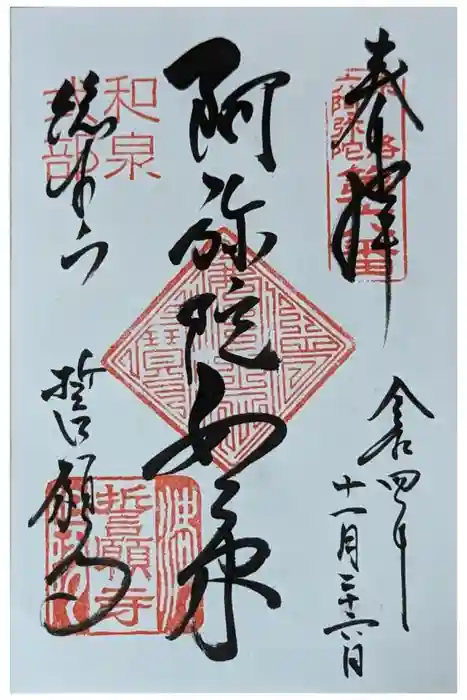 奉拝
令四年
十一月二十六日
阿弥陀如来
和泉
式部
総本山
誓願寺
誓願寺